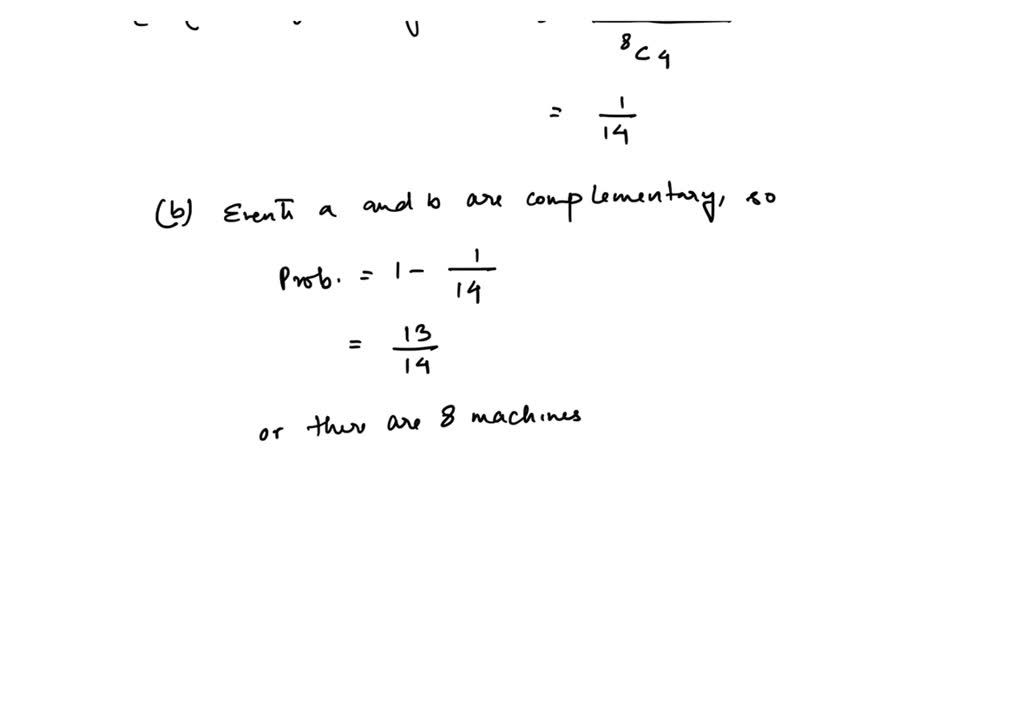 ⁸C₄
= 1/14
(b) Events a and b are complementary, so
Prob. = 1 - 1/14
= 13/14
or there are 8 machines